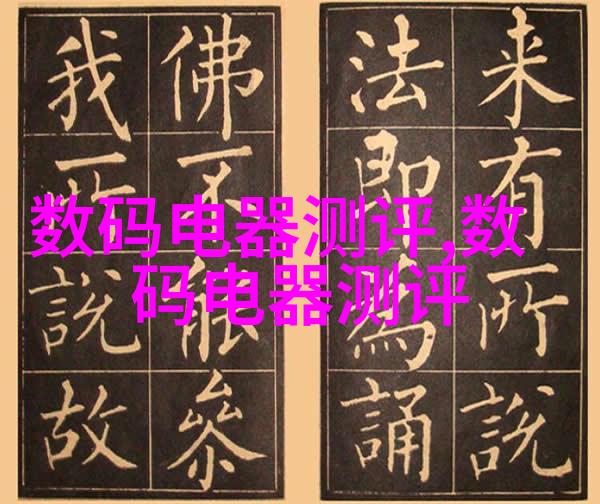 来有所說
法即為誦
佛不能參
我所說故
数码电器测评,数
码电器测评